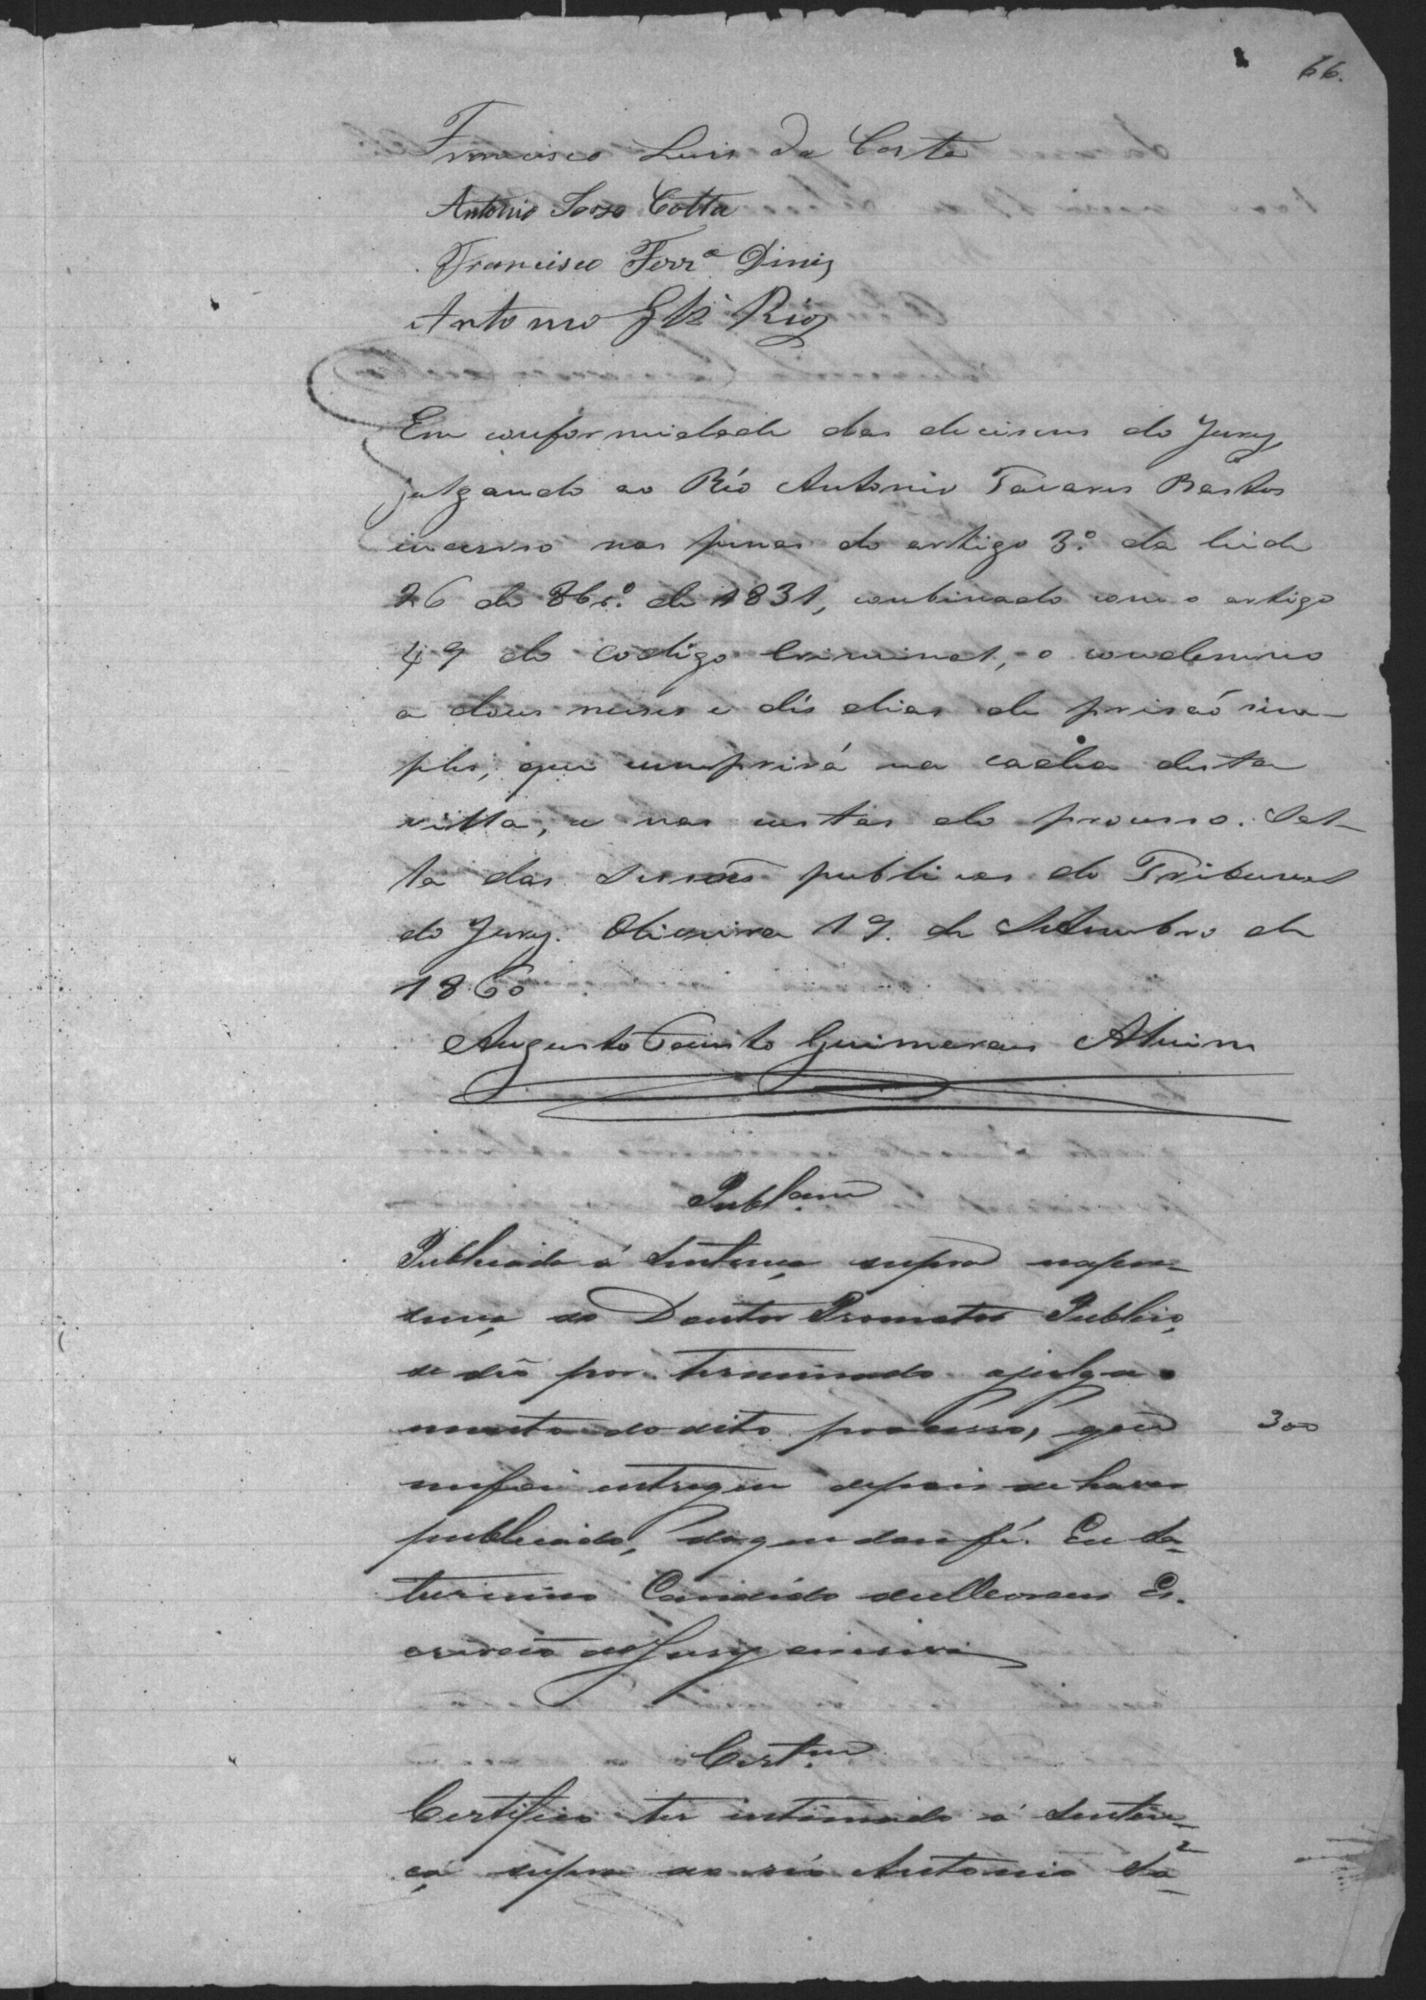 66.
Francisco Luis da Costa
Antonio Cotta
Francisco Ferrª Dinis
Antonio Glz Rios
Em conformidade das decisoens do Jury
julgando ao Réo Antonio Tavares Bastos
incurso nas penas do artigo 3.º da lei de
26 de 8br.º de 1831, combinado com o artigo
49 do codigo Criminal, o condemno
a dous meses e dés dias de prisaó sim-
ples, que cumprirá na cadea desta
villa, e nas custas do processo. Sal-
la das Sessoẽs publicas do Tribunal
do Jury. Oliveira 19. de Setembro de
1860
Augusto Guimaraes Alvim
Publ.am
Publicada á Sentença supra na pre-
sença do Doutor Promotor Publico,
se deo por terminado o julga-
mento do dito processo, que
me foi entregue depois de haver
publicado, do que dou fé. Eu Sa-
turnino Candido de Moraes Es-
crivaõ do Jury escrevi
300
Cert.am
Certifico ter intimado á Senten-
ça supra ao réo Antonio Ta-